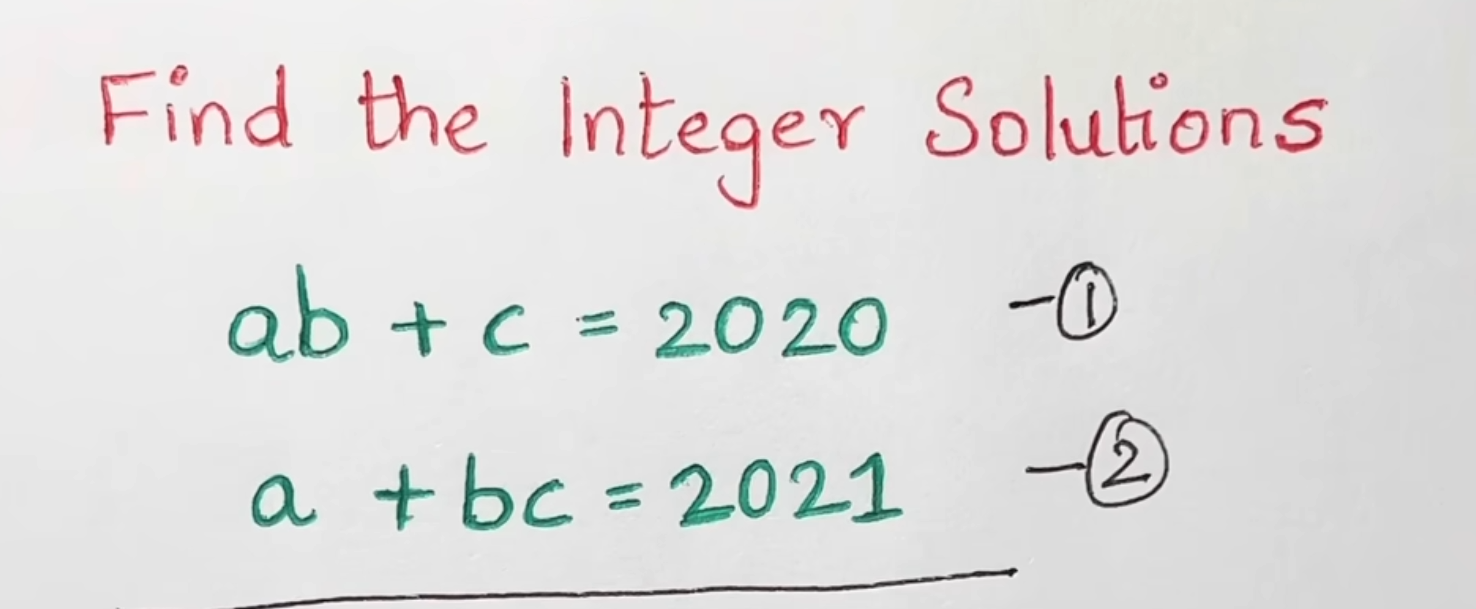 Find the Integer Solutions
ab + c = 2020 -①
a + bc = 2021 -②